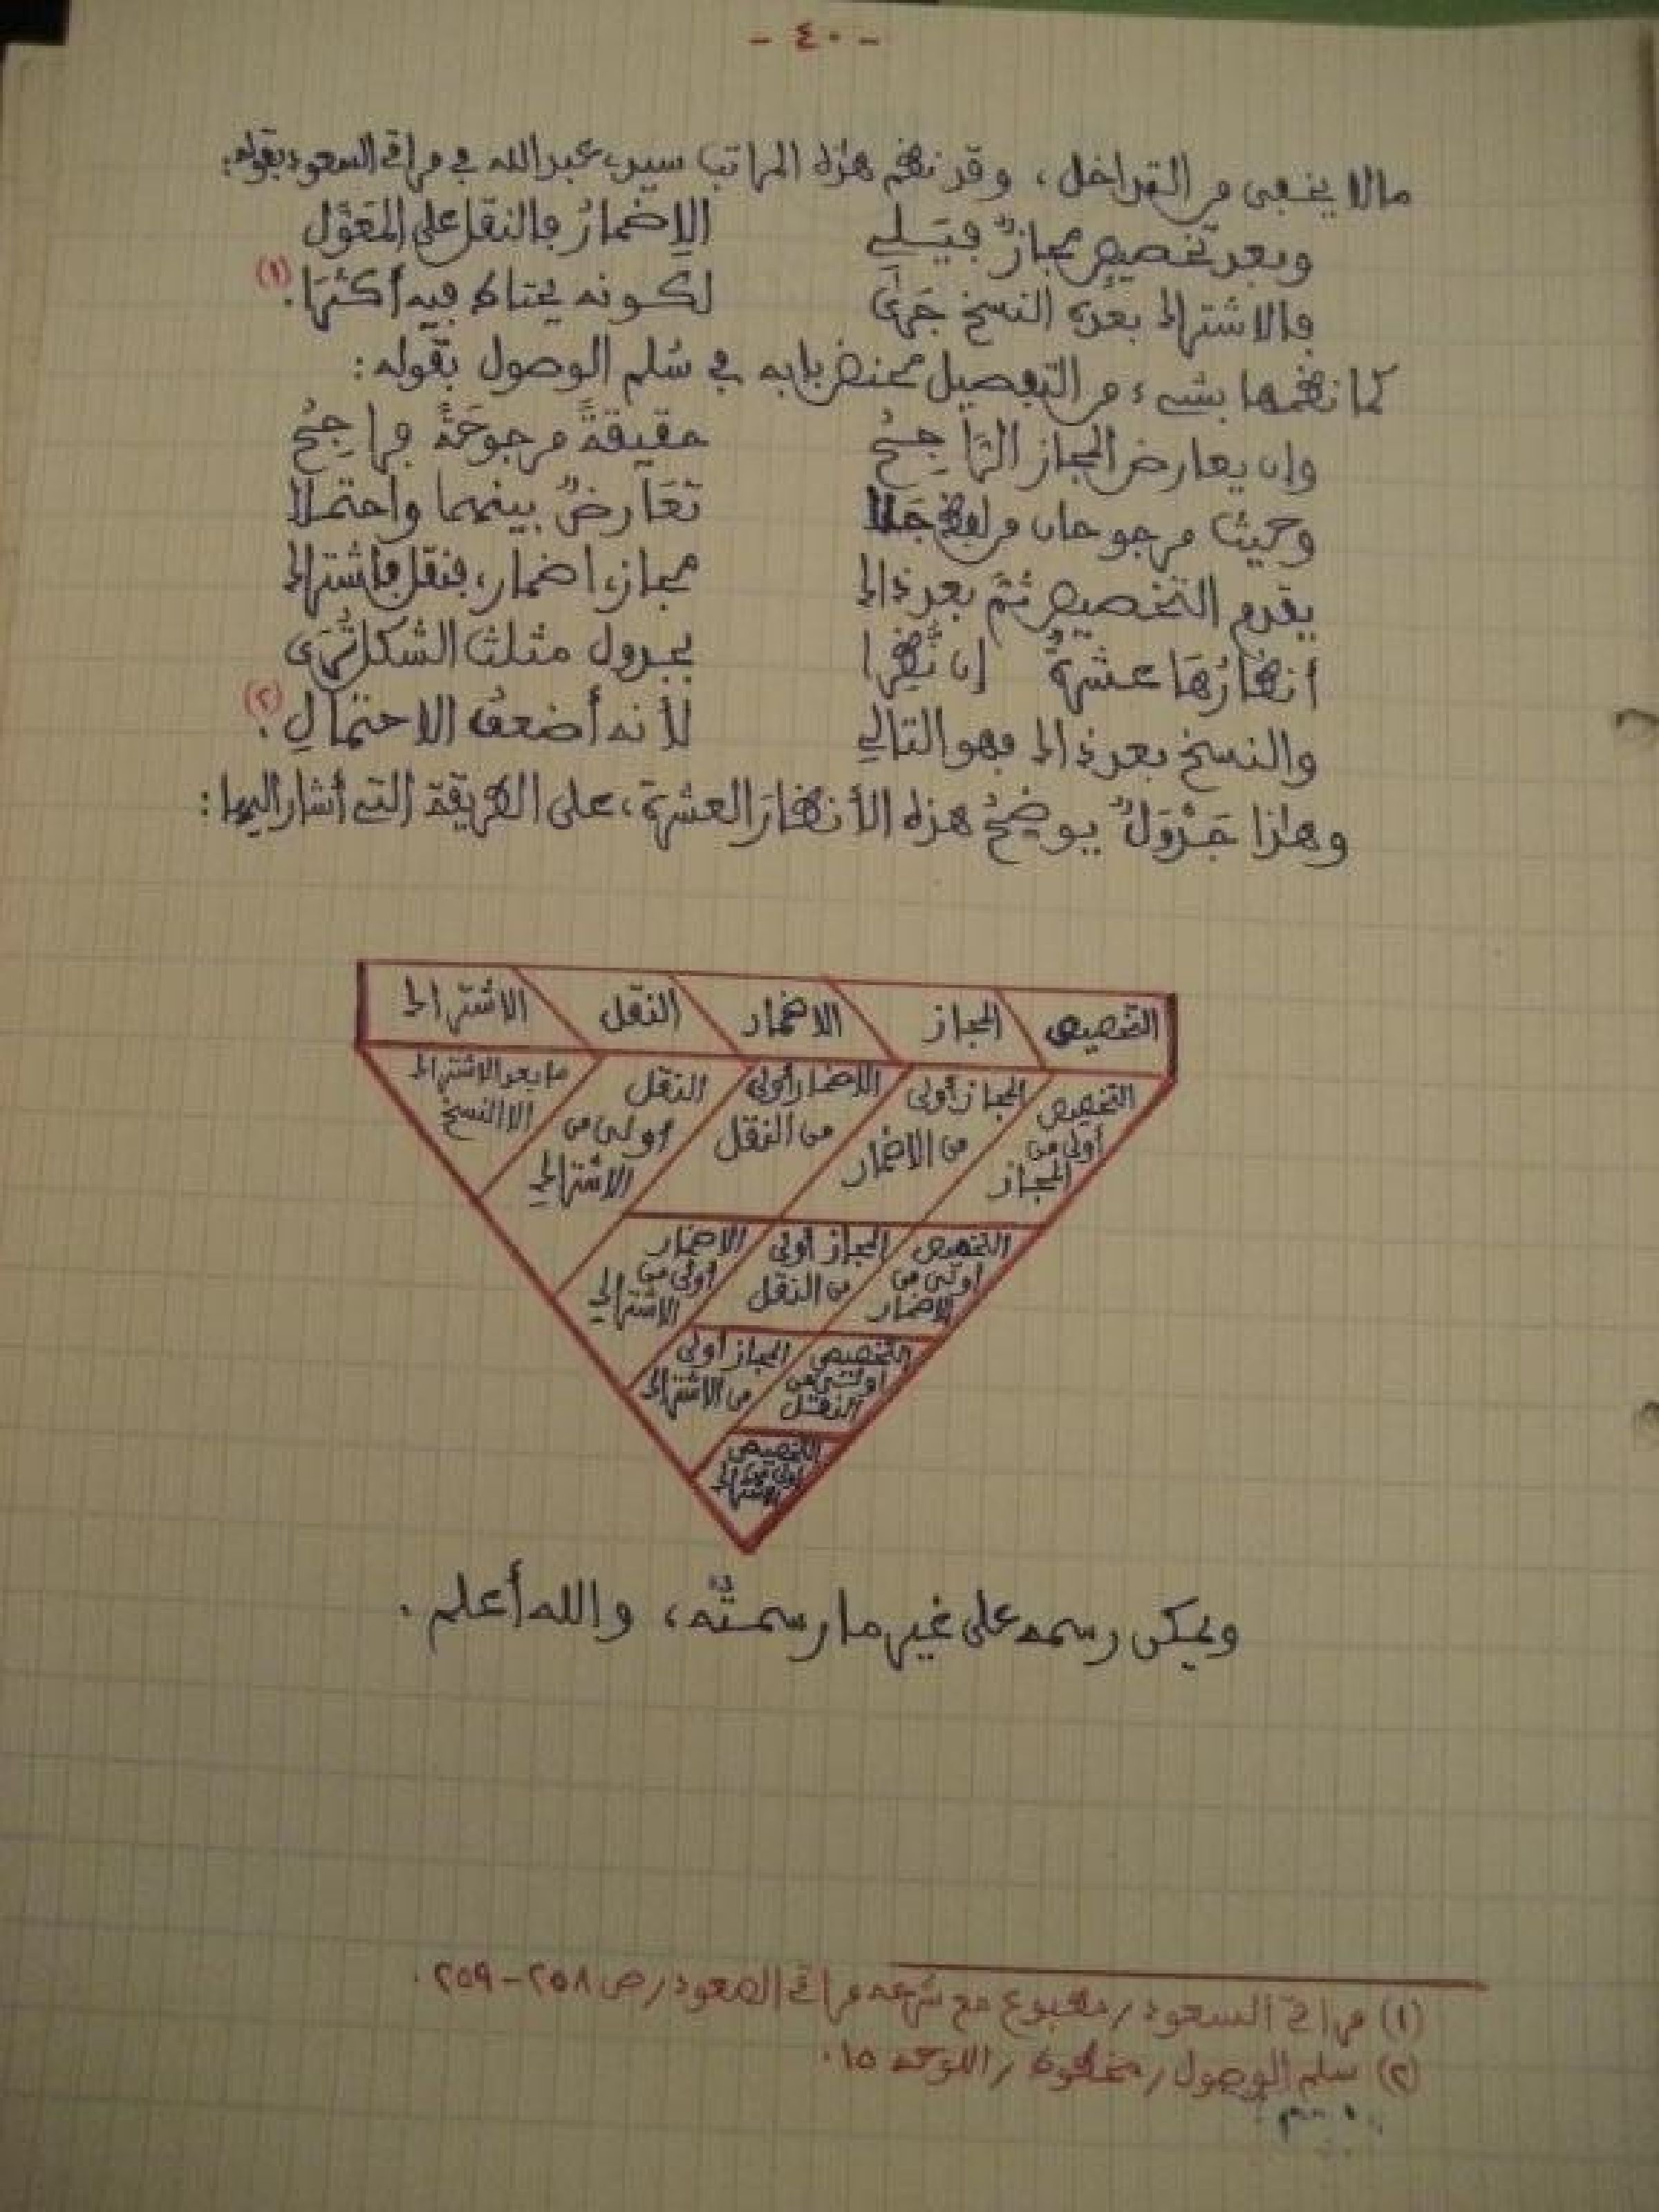 - ٤٠ -
مالا يخفى من التداخل، وقد نظم هذه المراتب سيدي عبد الله في مراقي السعود بقوله:
وبعد تخصيص مجازٌ فيَلي الإِضمارُ فالنقل على المُعَوَّل
فالاشتراك بعدَه النسخ جَرَى لكونه يحتاط فيه أكثرَا. (١)
كما نظمها بشيء من التفصيل محنض بابه في سُلم الوصول بقوله:
وإن يعارض المجاز الرَّاجِحُ حقيقةً مرجوحَةً فراجِحُ
وحيث مرجوحان من لفظ جَلا تَعَارضٌ بينهما واحتملا
يقدم التخصيص ثمَّ بعد ذاك مجاز، اضمار، فنقل فاشتراك
أنظارُهَا عشرةٌ إن تُنظرا بجدول مثلث الشكل تُرَى
والنسخ بعد ذاك فهو التالي لأنه أضعفُ الاحتمالِ. (٢)
وهذا جَدْوَلٌ يوضِحُ هذه الأنظارَ العشرة، على الطريقة التي أشار إليها:
التخصيص المجاز الاضمار النقل الاشتراك
التخصيص أولى من المجاز
المجاز أولى من الاضمار
الاضمار أولى من النقل
النقل أولى من الاشتراك
ما بعد الاشتراك الا النسخ
التخصيص أولى من الاضمار
المجاز أولى من النقل
الاضمار أولى من الاشتراك
التخصيص أولى من النقل
المجاز أولى من الاشتراك
التخصيص أولى من الاشتراك
ويمكن رسمه على غير ما رسمتُه، والله أعلم.
(١) مراقي السعود / مطبوع مع شرحه مراقي الصعود / ص ٢٥٨-٢٥٩.
(٢) سلم الوصول / مخطوط / اللوحة ١٥.